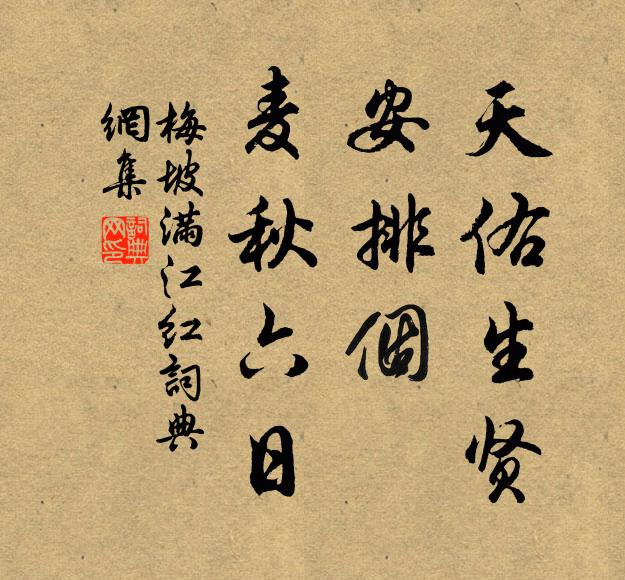 天佑生贤
安排個
麦秋六日
梅坡满江红詞典
網集
詞典
网印